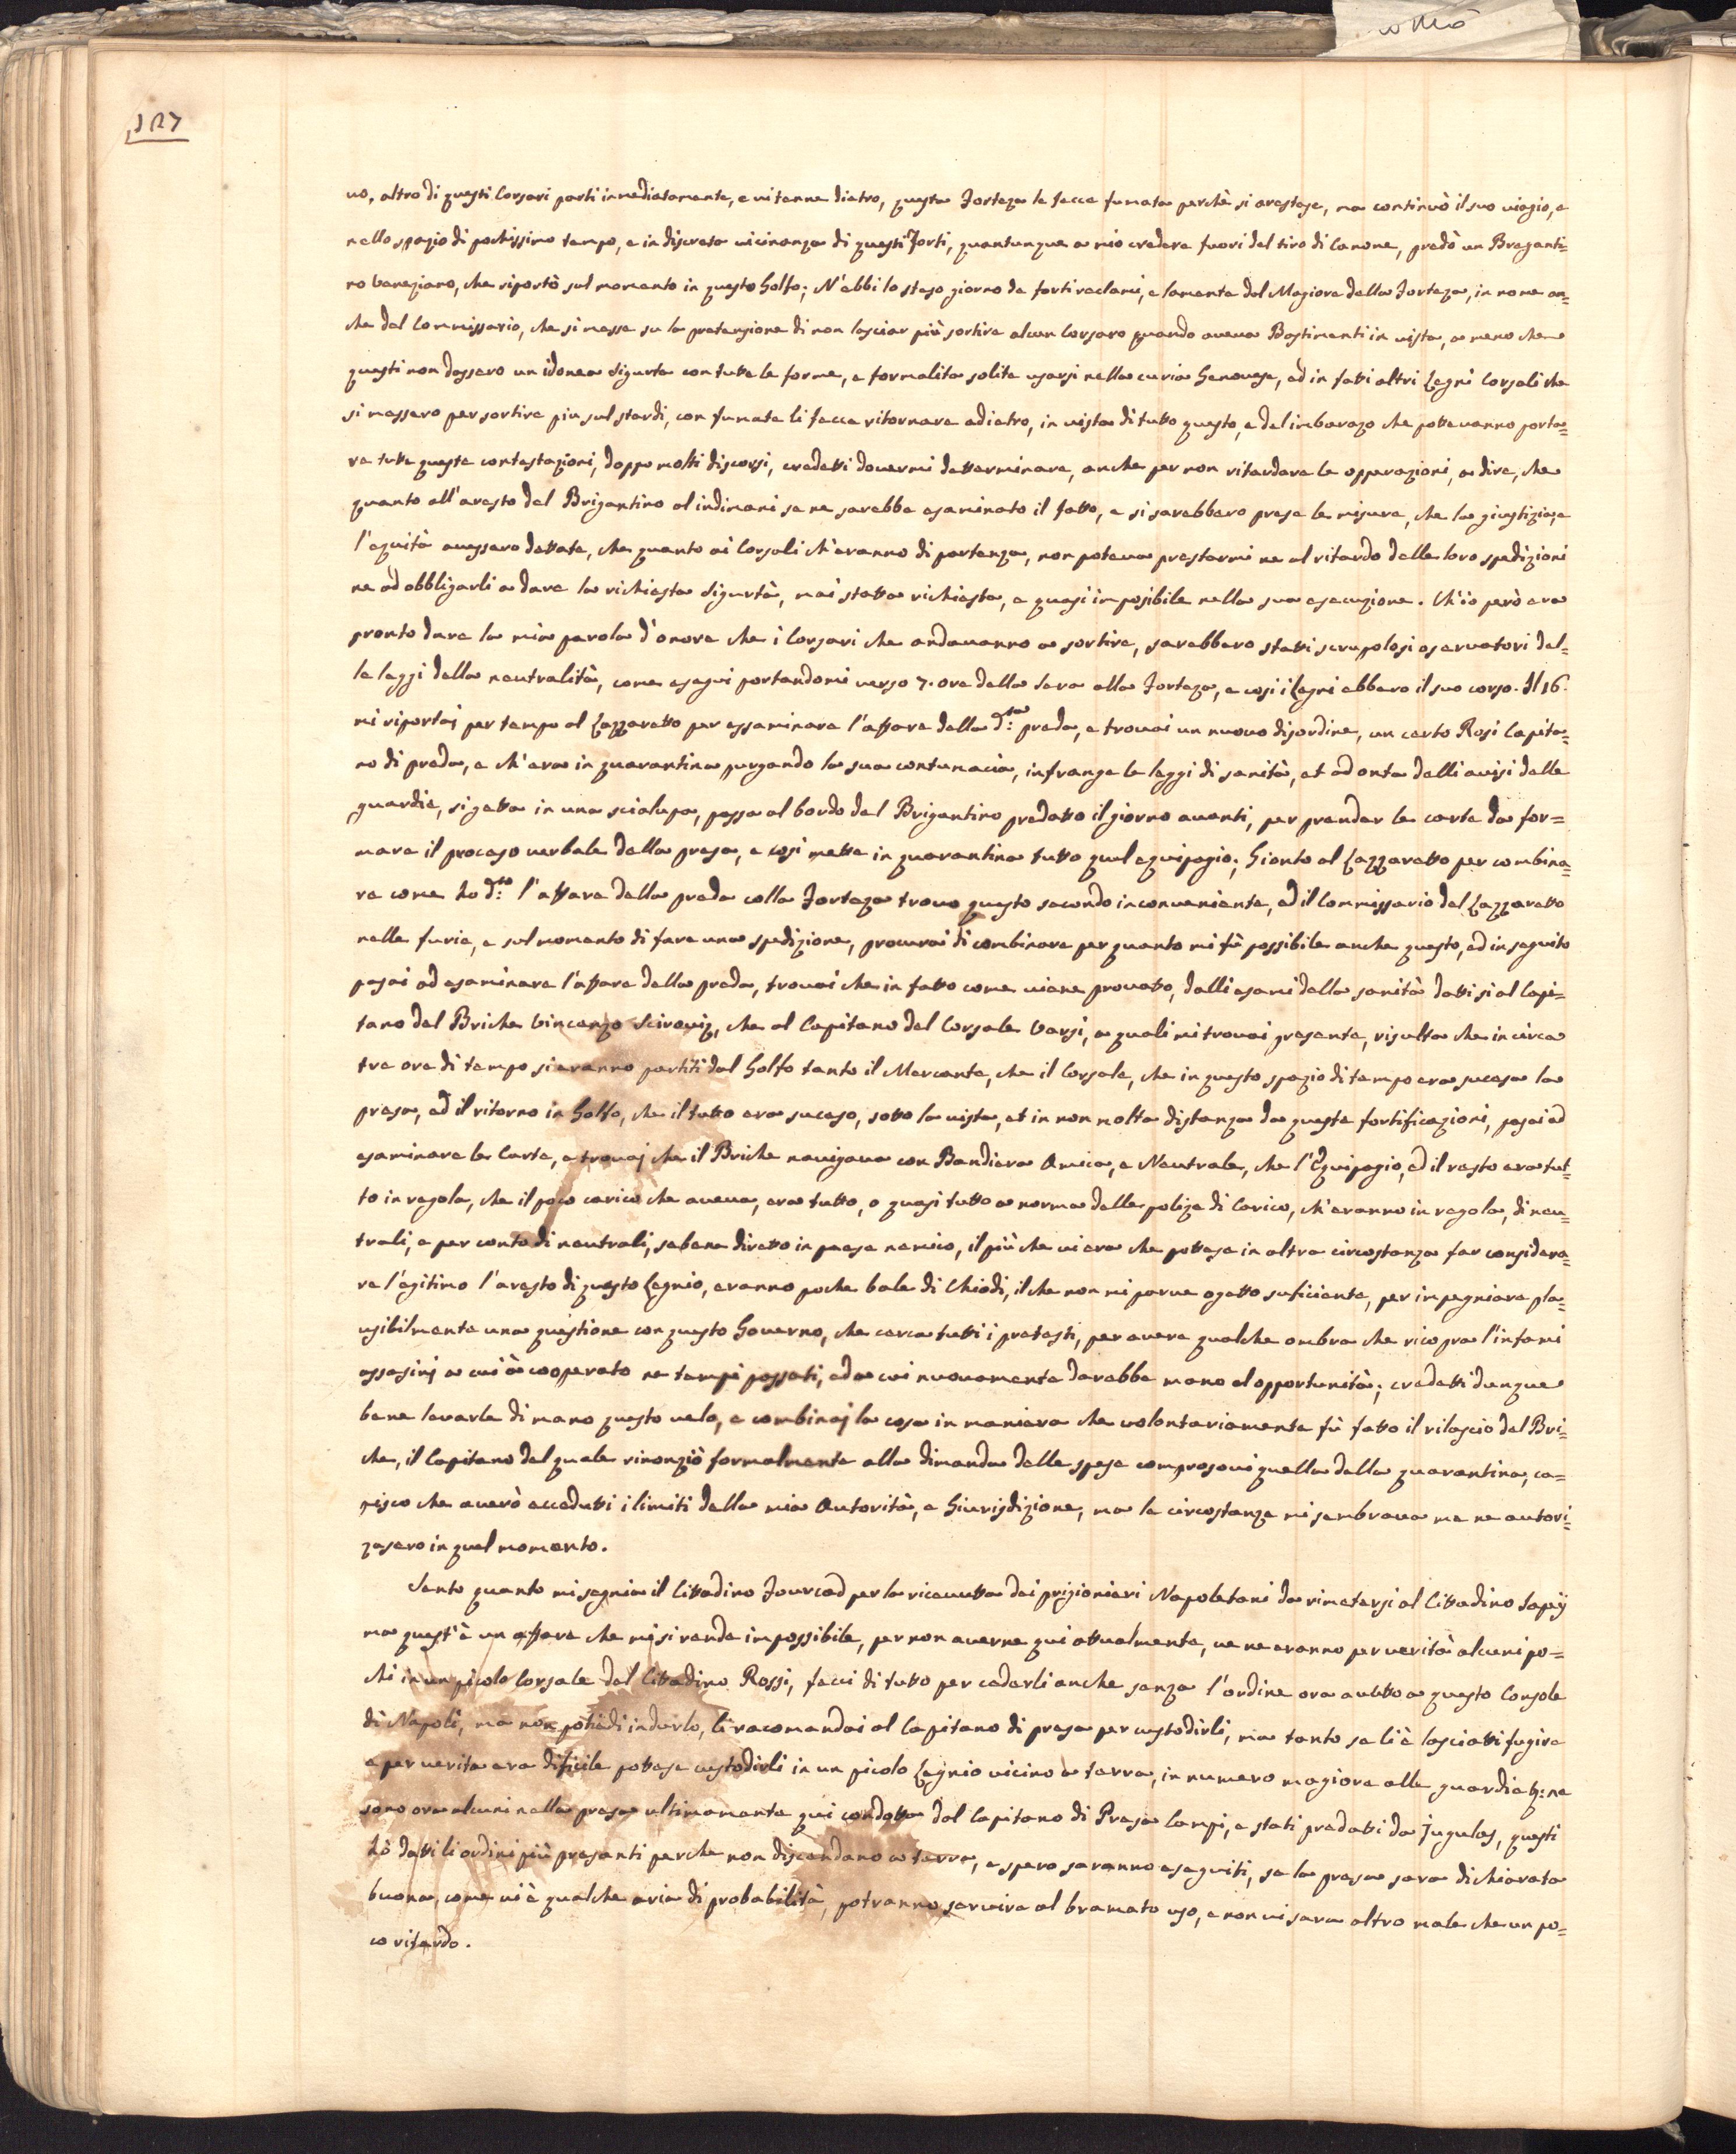 127
uo, altro di questi Corsari partì immediatamente, e vi tenne dietro, questa Forteza le fecce fumata perchè si arestase, ma continuò il suo viagio, e
nello spazio di pochissimo tempo, e in discreta vicinanza di questi Forti, quantunque a mio credere fuori del tiro di Canone, predò un Breganti=
no Veneziano, che riportò sul momento in questo Golfo; N'ebbi lo steso giorno de forti reclami, e lamente dal Magiore della Forteza, in nome an=
che del Commissario, che si messe su la pretensione di non lasciar più sortire alcun Corsaro quando aveva Bastimenti in vista, a meno che
questi non dassero un idonea sigurta con tutte le forme, e formalita solite usarsi nella curia Genovese, ed in fatti altri Legni Corsali che
si messero per sortire piu sul stardi, con fumate li fecce ritornare adietro, in vista di tutto questo, e del imbarazo che pottevanno porta=
re tutte queste contestazioni, doppo molti discorsi, credetti dovermi detterminare, anche per non ritardare le opperazioni, a dire, che
quanto all'aresto del Brigantino al indimani se ne sarebbe esaminato il fatto, e si sarebbero prese le misure, che la giustizia, e
l'equità avessero dettate, che quanto ai Corsali ch'eranno di partenza, non poteva prestarmi ne al ritardo delle loro spedizioni
ne ad obbligarli a dare la richiesta sigurtà, mai statta richiesta, e quasi imposibile nella sua esecuzione. Ch'io però era
pronto dare la mia parola d'onore che i Corsari che andavanno a sortire, sarebbero statti scrupolosi oservatori del=
le leggi della neutralità, come eseguì portandomi verso 7. ore della sera alla Forteza, e cosi i Legni ebbero il suo corso. Il 16.
mi riportai per tempo al Lazzaretto per essaminare l'affare della d:ta preda, e trovai un nuovo disordine, un certo Rosi Capita=
no di preda, e ch'era in quarantina purgando la sua contumacia, infrange le leggi di sanità, et ad onta delli avisi delle
guardie, si getta in una scialupa, passa al bordo del Brigantino predatto il giorno avanti, per prender le carte da for=
mare il proceso verbale della presa, e cosi mette in quarantina tutto quel equipagio; Gionto al Lazzaretto per combina=
re come ho d:to l'affare della preda colla Forteza trovo questo secondo inconveniente, ed il Commissario del Lazzaretto
nelle furie, e sul momento di fare una spedizione, procurai di combinare per quanto mi fù possibile anche questo, ed in seguito
pasai ad esaminare l'affare della preda, trovai che in fatto come viene provatto, dalli esami della sanità datti si al Capi=
tano del Briche Vincenzo Scirovig, che al Capitano del Corsale Varsi, a quali mi trovai presente, risulta che in circa
tre ore di tempo si eranno partiti dal Golfo tanto il Mercante, che il Corsale, che in questo spazio di tempo era sucesa la
presa, ed il ritorno in Golfo, che il tutto era suceso, sotto la vista, et in non molta distanza da queste fortificazioni, pasai ad
esaminare le Carte, e trovai che il Briche navigava con Bandiera Amica, e Neutrale, che l'Equipagio, ed il resto era tut=
to in regola, che il poco carico che aveva, era tutto, o quasi tutto a norma delle polize di Carico, ch'eranno in regola, di neu=
trali, e per conto di neutrali, sebene diretto in paese nemico, il più che vi era che pottese in altra circostanza far considera=
re l'egitimo l'aresto di questo Legnio, eranno poche bale di Chiodi, il che non mi parve ogetto suficiente, per impegniare pla=
usibilmente una questione con questo Governo, che cerca tutti i pretesti, per avere qualche ombra che ricopra l'infami
assasinj a cui à cooperato ne tempi passati, ed a cui nuovamente darebbe mano al opportunità; credetti dunque
bene levarle di mano questo velo, e combinaj la cosa in maniera che volontariamente fù fatto il rilascio del Bri=
che, il Capitano del quale rinonziò formalmente alla dimanda delle spese comprosovi quella della quarantina, ca=
pisco che averò eccedutti i limiti della mia Autorità, e Giurisdizione, ma le circostanze mi sembrava me ne autori=
zasero in quel momento.
Sento quanto mi segnia il Cittadino Fourcad per la ricevutta dei prigionieri Napoletani da rimetersi al Cittadino Sapey
ma quest'è un affare che mi si rende impossibile, per non averne qui attualmente, ve ne eranno per verità alcuni po=
chi in un picolo Corsale del Cittadino Rossi, feci di tutto per cederli anche senza l'ordine ora autto a questo Console
di Napoli, ma non potiedi indurlo, li racomandai al Capitano di presa per custodirli, ma tanto se li è lasciatti fugire
e per verita era dificile pottese custodirli in un picolo Legnio vicino a terra, in numero magiore alle guardie &: ne
sono ora alcuni nella presa ultimamente qui condotta dal Capitano di Presa Campi, e stati predatti da Jugulas, questi
hò datti li ordini più presanti perche non discendano a terra, e spero saranno eseguiti, se la presa sara dichiarata
buona, come vi è qualche aria di probabilità, potranno servire al bramato uso, e non vi sara altro male che un po=
co ritardo.